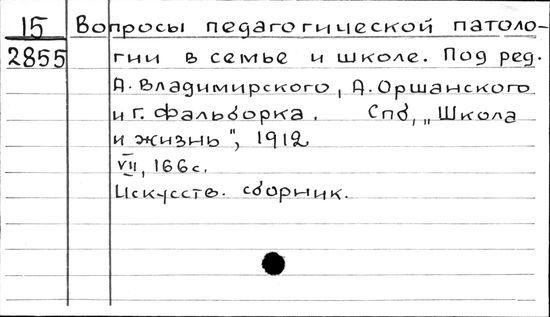 15 Вопросы педагогической патоло-
2855 гии в семье и школе. Под ред.
А. Владимирского, А. Оршанского
и Г. Фальборка. Спб, „Школа
и жизнь", 1912
VII, 166 с.
Искусств. сборник.